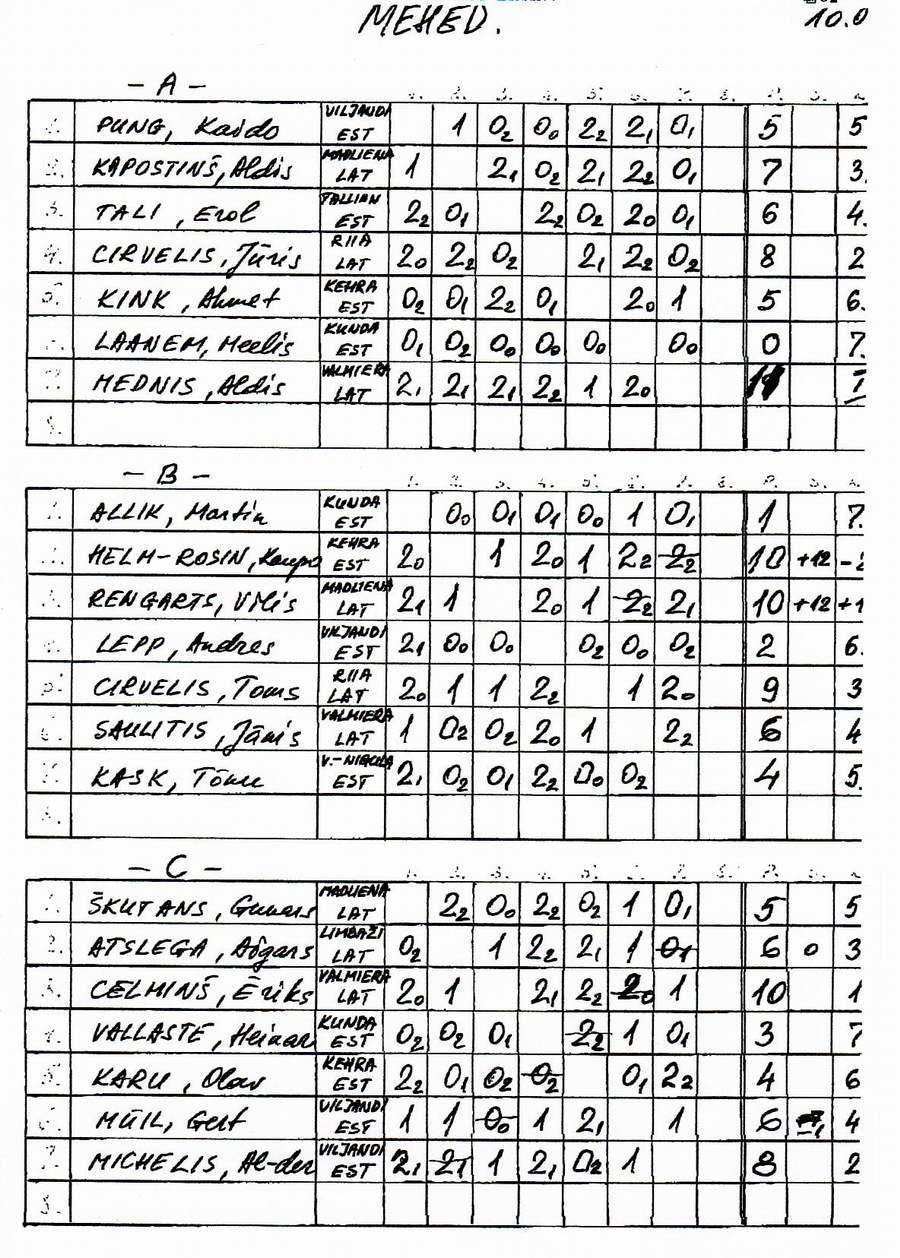 MEHED.
10.0
- A -
1. 2. 3. 4. 5. 6. 7. 8. P. S. K
1. PUNG, Kaido VILJANDI EST 1 0₂ 0₀ 2₂ 2₁ 0₁ 5 5
2. KAPOSTIŅŠ, Aldis MADLIENA LAT 1 2₁ 0₂ 2₁ 2₂ 0₁ 7 3.
3. TALI, Erol TALLIAN EST 2₂ 0₁ 2₂ 0₂ 2₀ 0₁ 6 4.
4. CIRVELIS, Jūris RIIA LAT 2₀ 2₂ 0₂ 2₁ 2₂ 0₂ 8 2
5. KINK, Ahmet KEHRA EST 0₂ 0₁ 2₂ 0₁ 2₀ 1 5 6.
LAANEM, Meelis KUNDA EST 0₁ 0₂ 0₀ 0₀ 0₀ 0₀ 0 7.
7. MEDNIS, Aldis VALMIERA LAT 2₁ 2₁ 2₁ 2₂ 1 2₀ 11 1
8.
- B -
1. 2. 3. 4. 5. 6. 7. 8. P. S. K
1. ALLIK, Martin KUNDA EST 0₀ 0₁ 0₁ 0₀ 1 0₁ 1 7.
HELM-ROSIN, Kaupo KEHRA EST 2₀ 1 2₀ 1 2₂ 2₂ 10 +12 -2
RENGARTS, Vilis MADLIENA LAT 2₁ 1 2₀ 1 2₂ 2₁ 10 +12 +1
4. LEPP, Andres VILJANDI EST 2₁ 0₀ 0₀ 0₂ 0₀ 0₂ 2 6.
5. CIRVELIS, Toms RIIA LAT 2₀ 1 1 2₂ 1 2₀ 9 3
6. SAULITIS, Jānis VALMIERA LAT 1 0₂ 0₂ 2₀ 1 2₂ 6 4
7. KASK, Tõnu V.-NIGULA EST 2₁ 0₂ 0₁ 2₂ 0₀ 0₂ 4 5.
8.
- C -
1. 2. 3. 4. 5. 6. 7. 8. P. S. K
1. ŠKUTANS, Gunars MADLIENA LAT 2₂ 0₀ 2₂ 0₂ 1 0₁ 5 5
2. ATSLEGA, Aigars LIMBAŽI LAT 0₂ 1 2₂ 2₁ 1 0₁ 6 0 3
3. CELMIŅŠ, Ēriks VALMIERA LAT 2₀ 1 2₁ 2₂ 2₀ 1 10 1
4. VALLASTE, Heinar KUNDA EST 0₂ 0₂ 0₁ 2₂ 1 0₁ 3 7
5. KARU, Olav KEHRA EST 2₂ 0₁ 0₂ 0₂ 0₁ 2₂ 4 6
6. MÜIL, Gert VILJANDI EST 1 1 0₀ 1 2₁ 1 6 4
7. MICHELIS, Al-der VILJANDI EST 2₁ 2₁ 1 2₁ 0₂ 1 8 2
8.